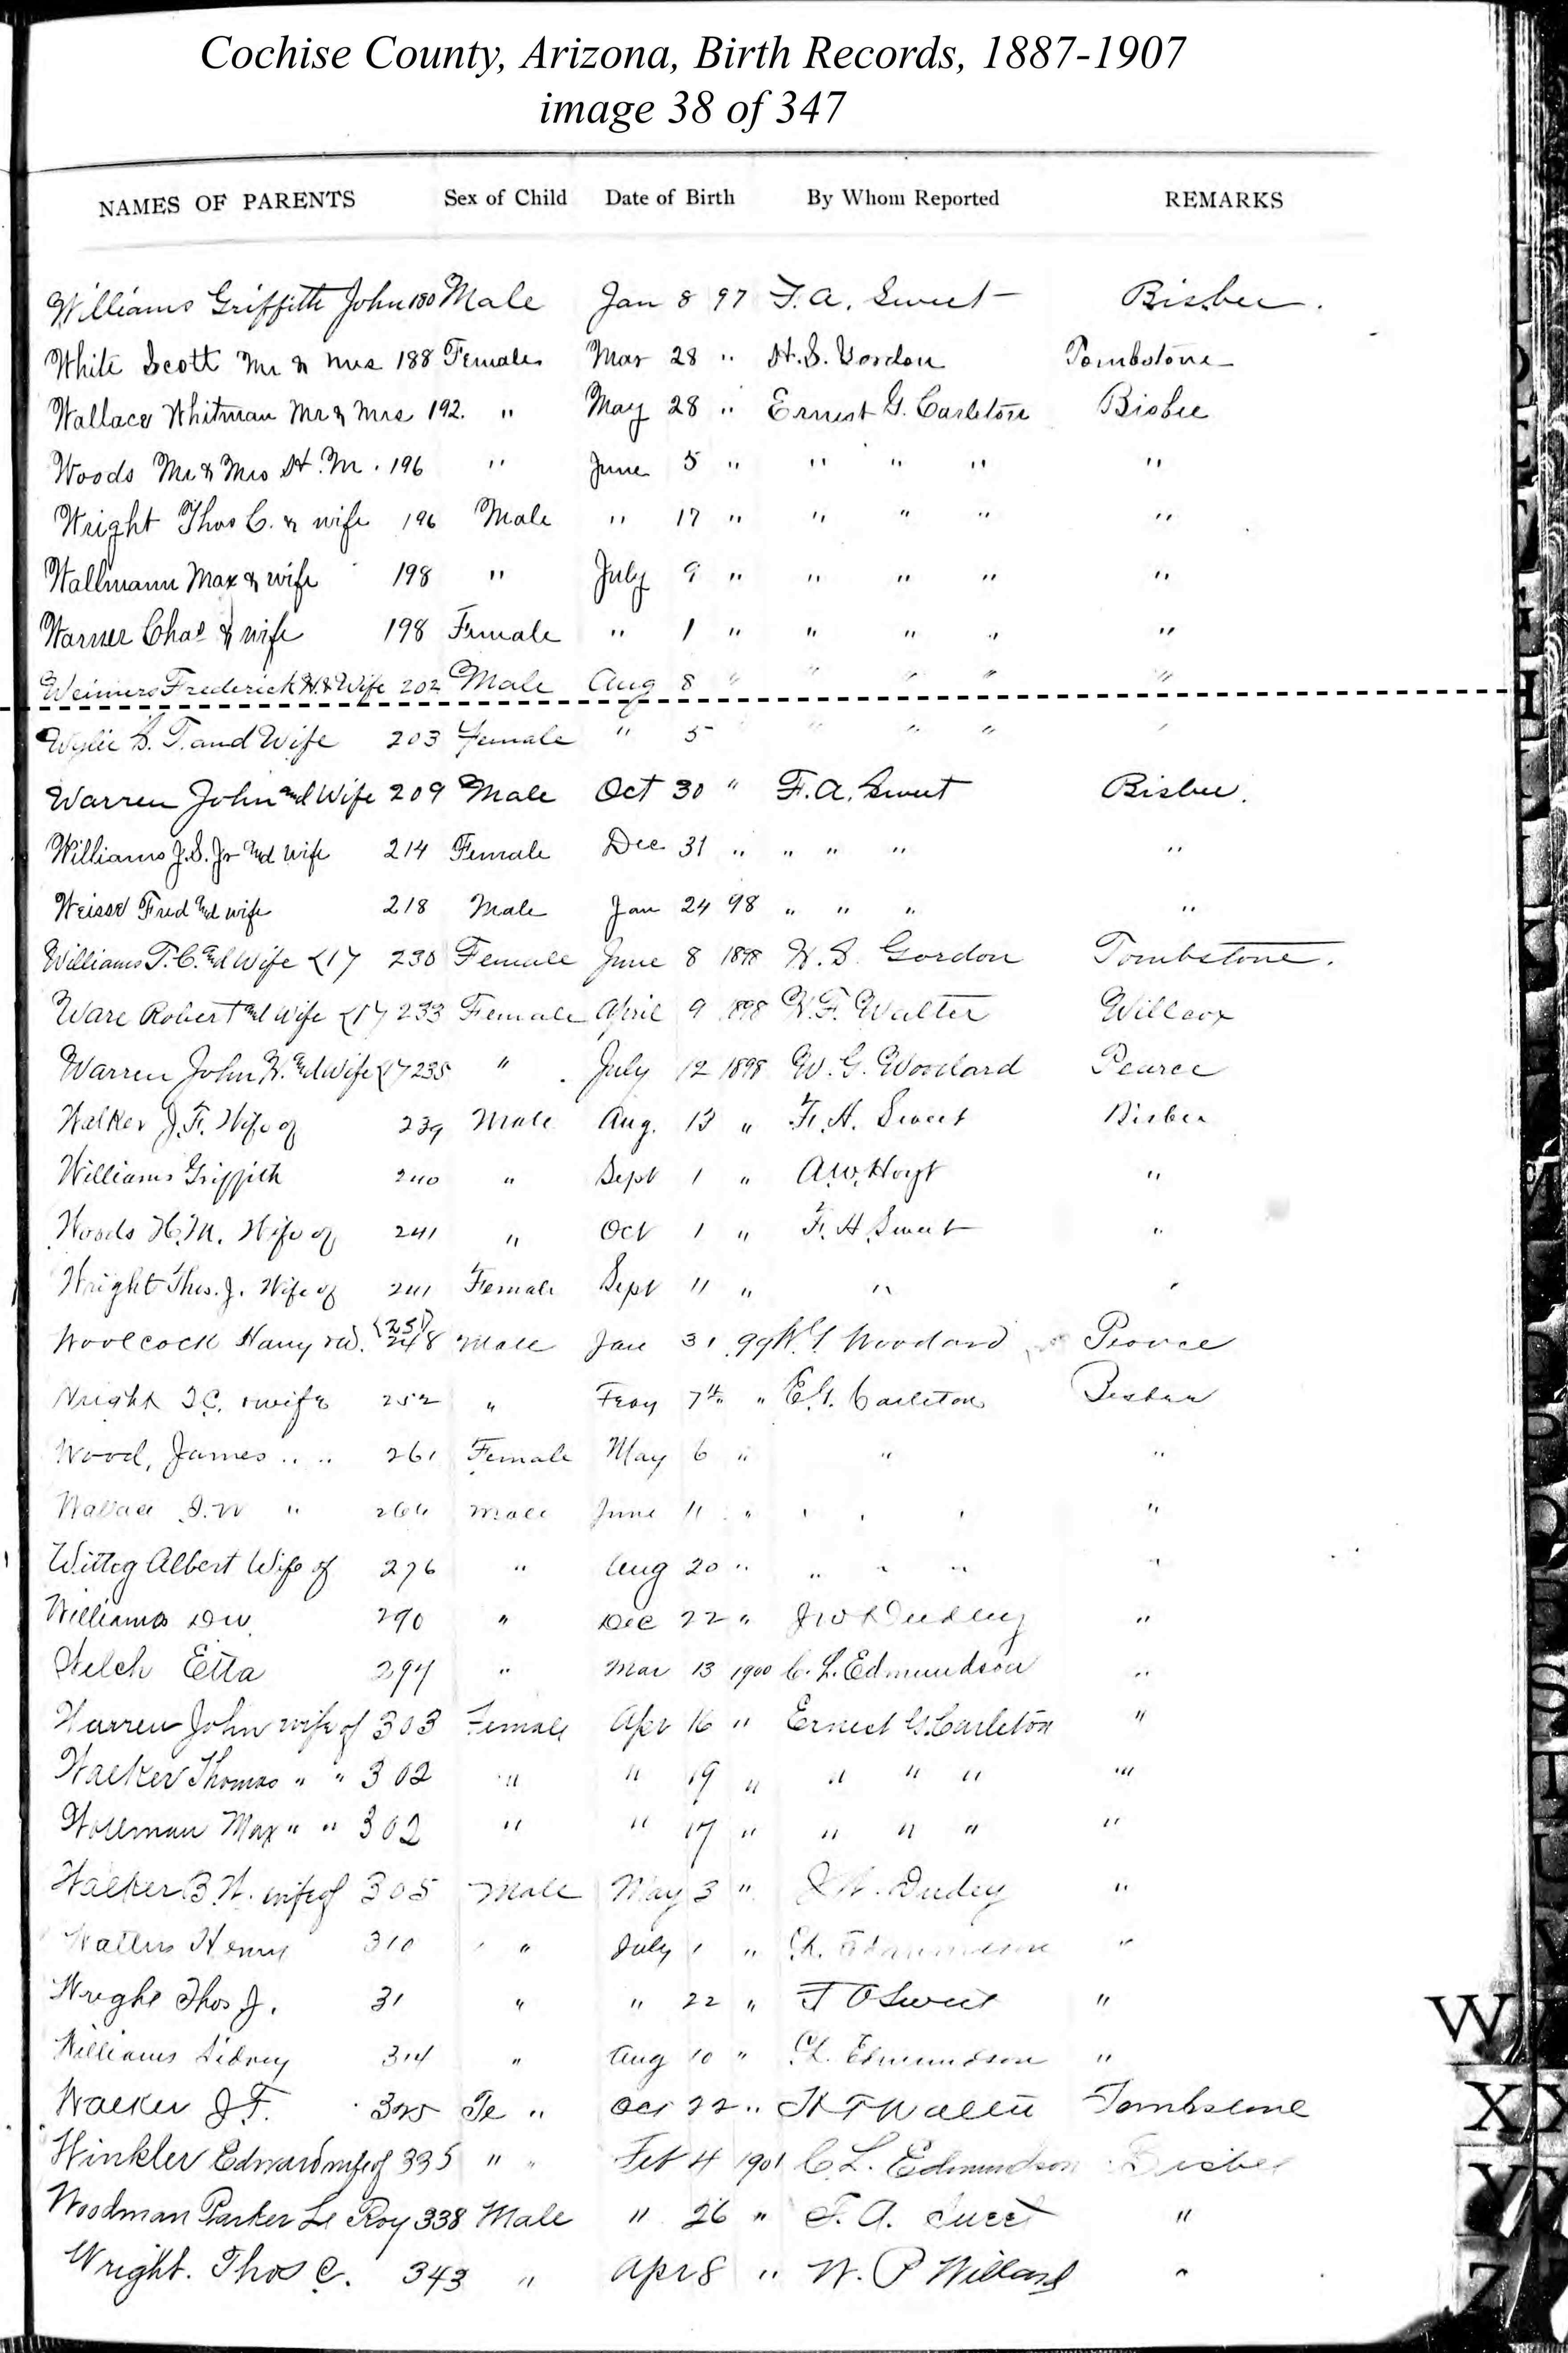 Cochise County, Arizona, Birth Records, 1887-1907
image 38 of 347
NAMES OF PARENTS Sex of Child Date of Birth By Whom Reported REMARKS
Williams Griffith John 180 Male Jan 8 97 F. A. Sweet Bisbee.
White Scott Mr & Mrs 188 Female Mar 28 " H. S. Gordon Tombstone
Wallace Whitman Mr & Mrs 192. " May 28 " Ernest G. Carleton Bisbee
Woods Mr & Mrs H. M. 196 " June 5 " " " " "
Wright Thos C. & wife 196 Male " 17 " " " " "
Wallmann Max & wife 198 " July 9 " " " " "
Warner Chas & wife 198 Female " 1 " " " " "
Weimers Frederick H. & Wife 202 Male Aug 8 " " " " "
Wylie S. T. and Wife 203 Female " 5 " " " "
Warren John and Wife 209 Male Oct 30 " F. A. Sweet Bisbee.
Williams J. S. Jr and Wife 214 Female Dec 31 " " " " "
Weisse Fred and wife 218 Male Jan 24 98 " " " "
Williams T. C. and Wife <17 230 Female June 8 1898 H. S. Gordon Tombstone.
Ware Robert and Wife <17 233 Female April 9 1898 H. F. Walter Willcox
Warren John H. and Wife <17 235 " July 12 1898 W. G. Woodard Pearce
Walker J. F. Wife of 239 Male Aug. 13 " F. A. Sweet Bisbee
Williams Griffith 240 " Sept 1 " A. W. Hoyt "
Woods H. M. Wife of 241 " Oct 1 " F. A. Sweet "
Wright Thos. J. Wife of 241 Female Sept 11 " " "
Woolcock Harry (251) 248 Male Jan 31 99 Woodard Pearce
Wright T C. & wife 252 " 7th " E. G. Carleton Bisbee
Wood, James " " 261 Female May 6 " " "
Wallace 264 Male June 11 " " " " "
Wittig Albert Wife of 276 " Aug 20 " " " " "
Williams D W 290 " Dec 22 " Dudley "
Welch Etta 294 " Mar 13 1900 C. L. Edmundson "
Warren John wife of 303 Female Apr 16 " Ernest G. Carleton "
Walker Thomas " " 302 " " 19 " " " " "
Wollman Max " " 302 " " 17 " " " " "
Walker B. W. wife of 305 Male May 3 " "
Walters Henry 310 " July 1 " C. L. Edmundson "
Wright Thos J. 31 " " 22 " F A Sweet "
Williams Sidney 314 " Aug 10 " C. L. Edmundson "
Walker J F. 325 Fe " Oct 22 " H F Walter Tombstone
Winkler Edward wife of 335 " " Feb 4 1901 C. L. Edmundson Bisbee
Woodman Parker Le Roy 338 Male " 26 " F. A. Sweet "
Wright. Thos C. 343 " Apr 8 " W. P Willard "
W
X
Y
Z